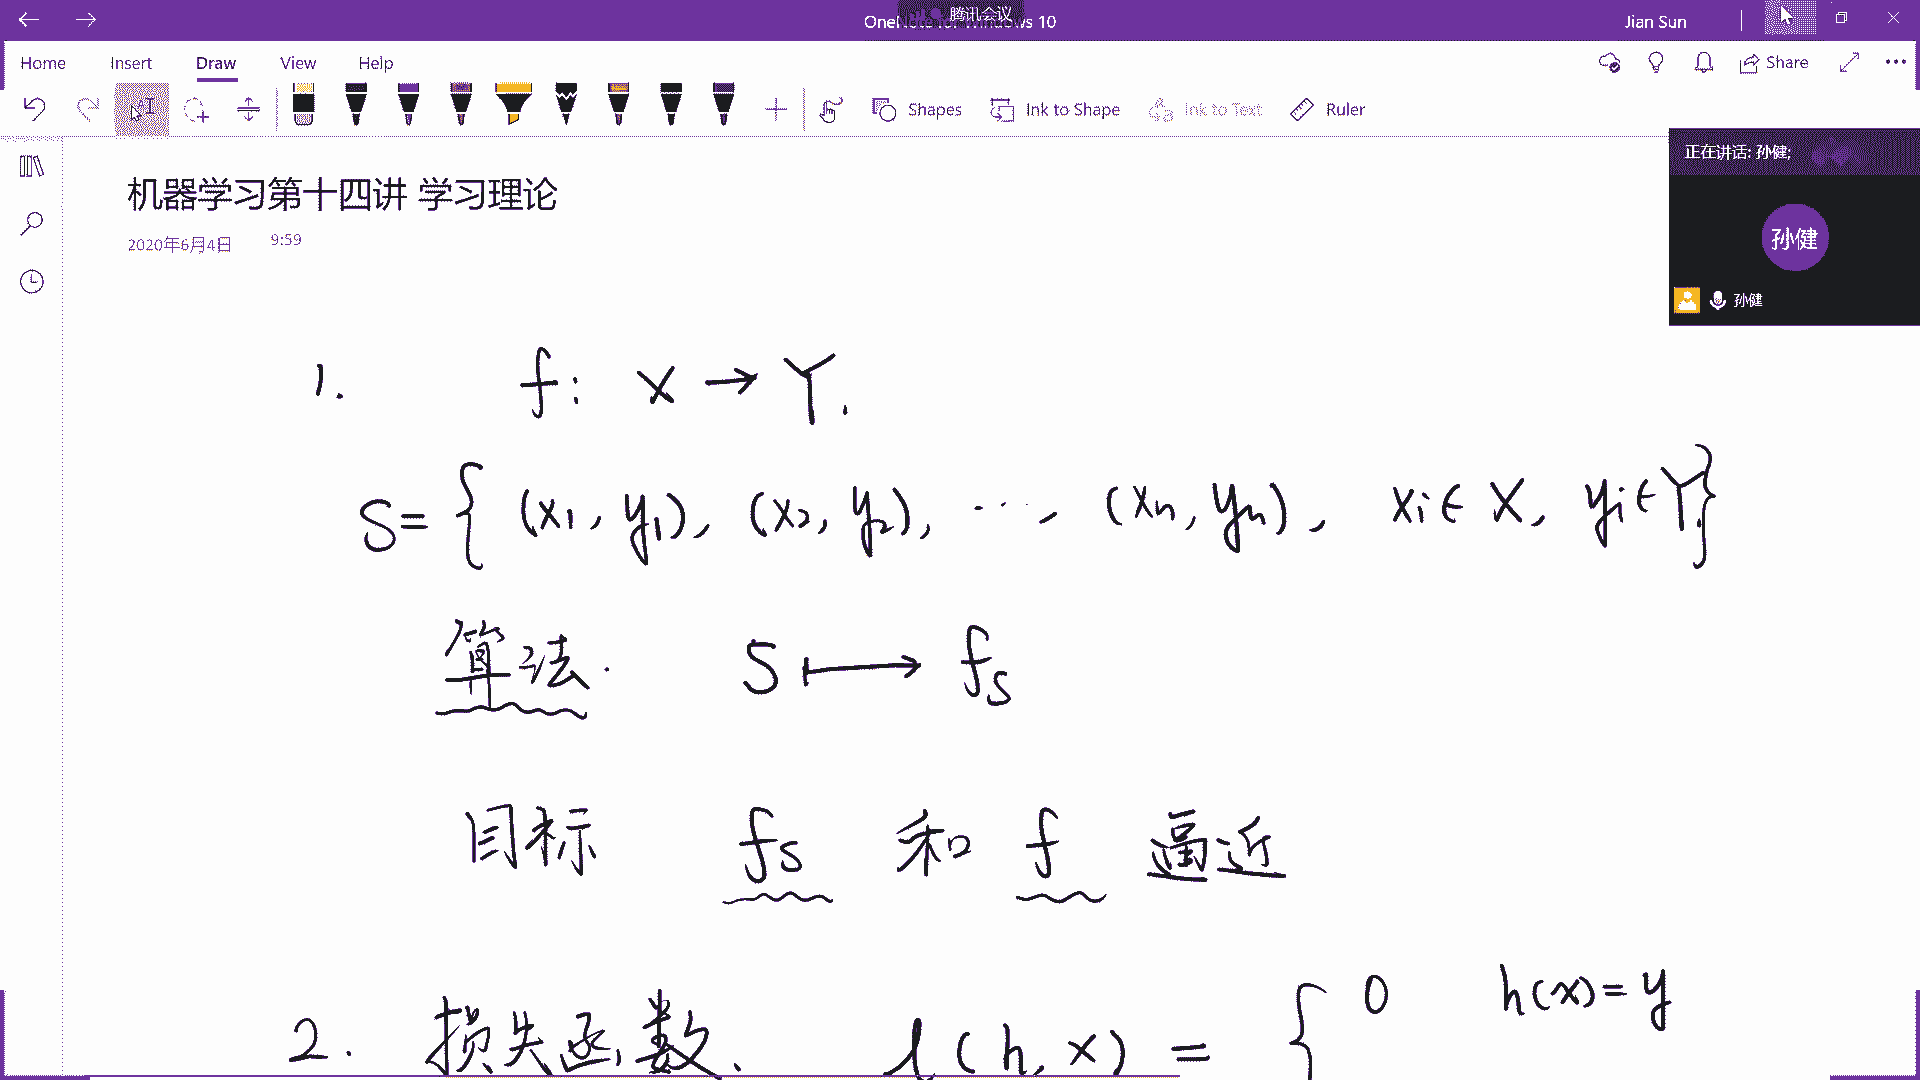 腾讯会议
Jian Sun
Home Insert Draw View Help
Share
Shapes Ink to Shape Ink to Text Ruler
正在讲话: 孙健;
孙健
孙健
机器学习第十四讲 学习理论
2020年6月4日 9:59
1. f: X → Y.
S = { (x₁, y₁), (x₂, y₂), ..., (xₙ, yₙ), xᵢ ∈ X, yᵢ ∈ Y. }
算法. S ↦ f_S
目标 f_S 和 f 逼近
2. 损失函数. l(h, x) = { 0 h(x) = y